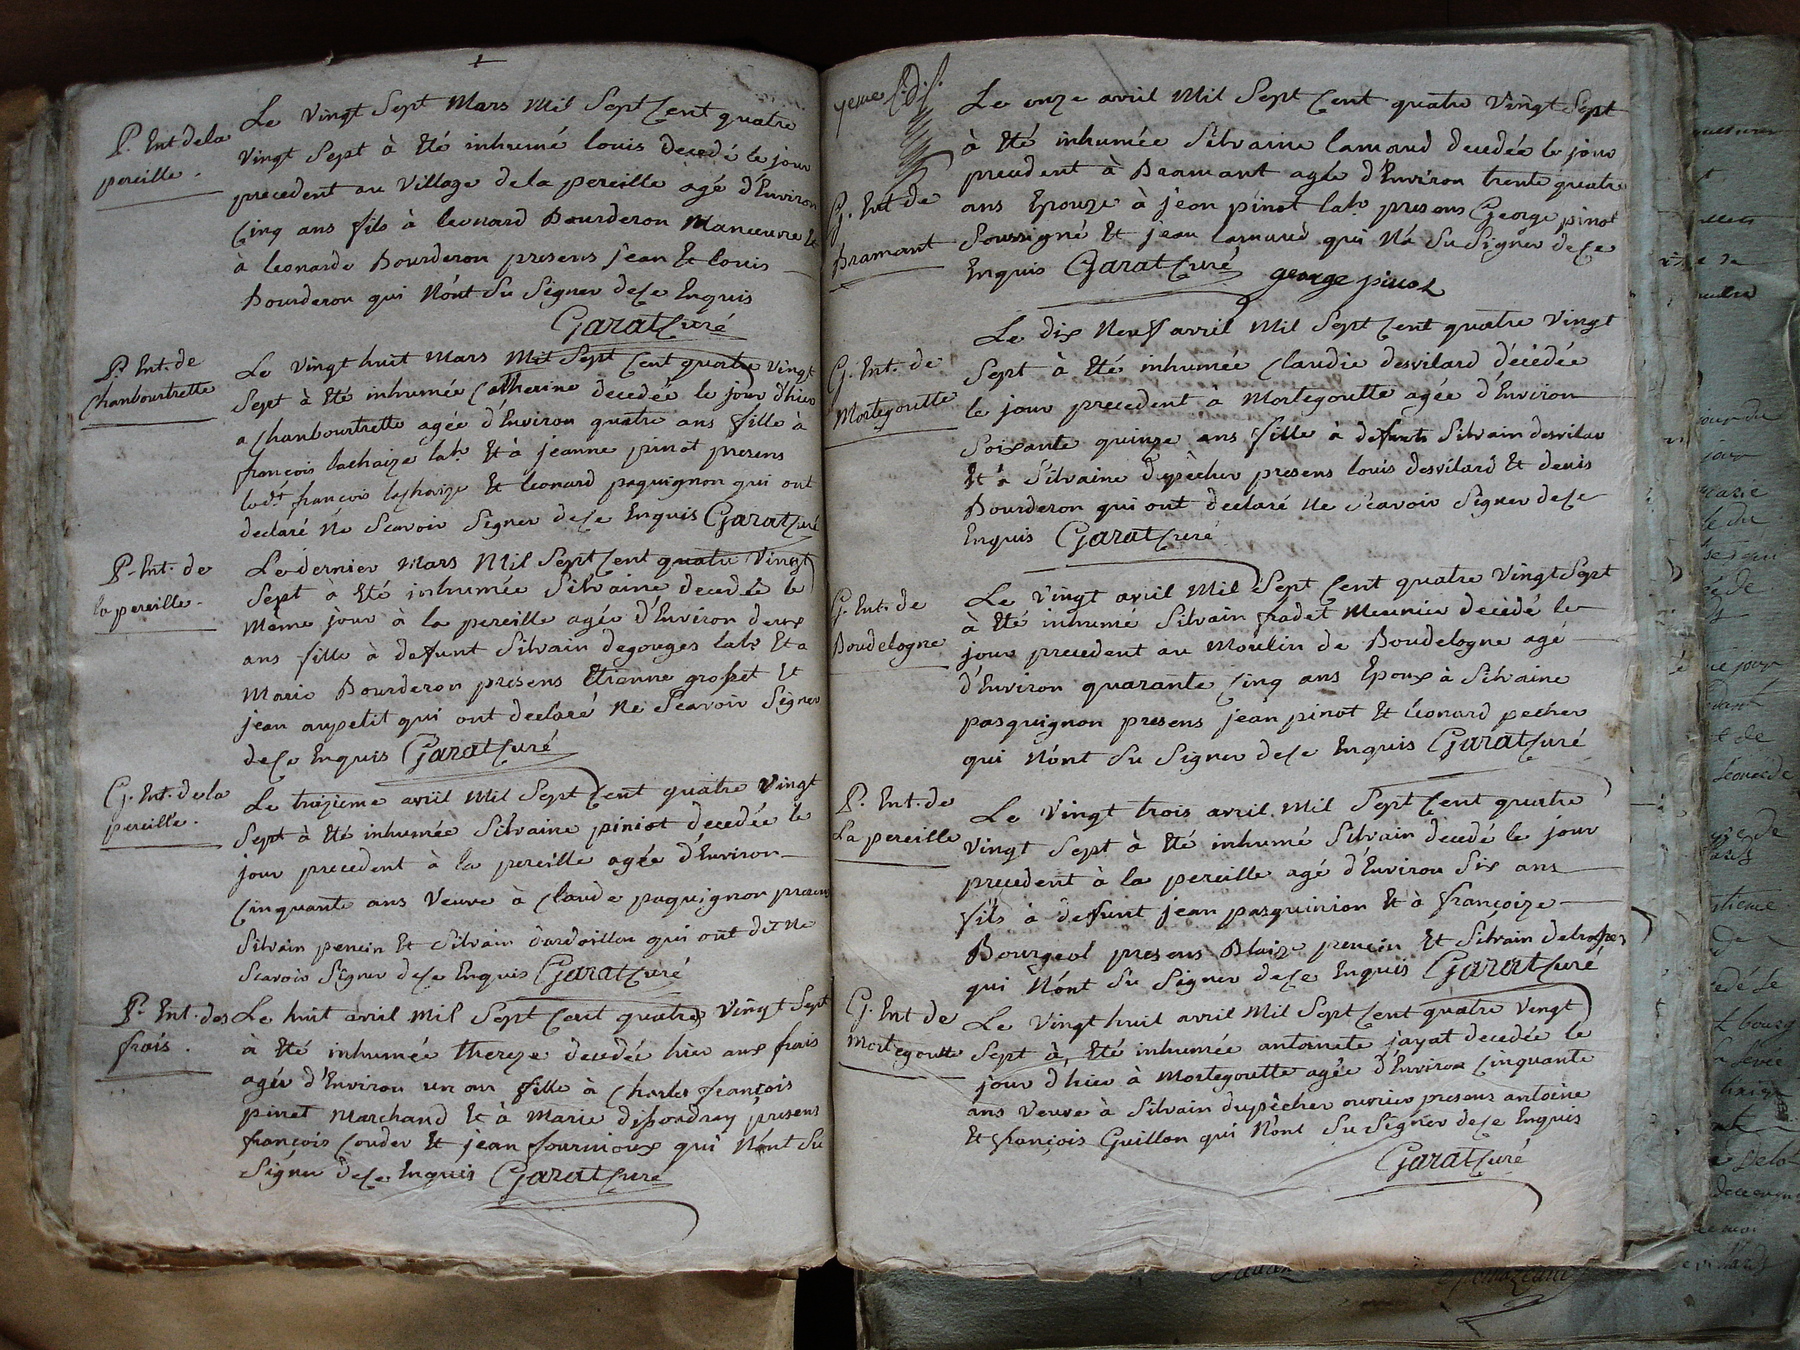 P. Ent. de la
pereille.
Le vingt Sept Mars Mil Sept Cent quatre
vingt Sept à Eté inhumé louis decedé le jour
precedent au village de la pereille agé d'Environ
Cinq ans fils à leonard Bourderon Manœuvre Et
à leonarde Bourderon presens jean Et louis
Bourderon qui n'ont Su Signer de Ce Enquis
Garat Curé
P. Ent. de
Chanbourtrette
Le vingt huit Mars Mil Sept Cent quatre vingt
Sept à Eté inhumée Catherine decedée le jour d'hier
a Chanbourtrette agée d'Environ quatre ans fille à
françois lachaize lab.r Et à jeanne pinot presens
led.t françois lachaize Et leonard paquignon qui ont
declaré Ne Scavoir Signer de Ce Enquis Garat Curé
P. Ent. de
la pereille.
Le dernier Mars Mil Sept Cent quatre vingt
Sept à Eté inhumée Silvaine decedée le
Même jour à la pereille agée d'Environ deux
ans fille à defunt Silvain degouges lab.r Et a
Marie Bourderon presens Etienne grosset Et
jean aupetit qui ont declaré Ne Scavoir Signer
de Ce Enquis Garat Curé
G. Ent. de la
pereille.
Le troizieme avril Mil Sept Cent quatre vingt
Sept à Eté inhumée Silvaine piniot decedée le
jour precedent à la pereille agée d'Environ
Cinquante ans veuve à Claude paquignon presens
Silvain penein Et Silvain dardaillon qui ont dit Ne
Scavoir Signer de Ce Enquis Garat Curé
P. Ent. des
frais.
Le huit avril Mil Sept Cent quatre vingt Sept
à Eté inhumée thereze decedée hier aux frais
agée d'Environ un an fille à Charles françois
pinet Marchand Et à Marie dissoudray presens
françois Couder Et jean fournioux qui N'ont Su
Signer de Ce Enquis Garat Curé
G. Ent de
Bramant
Le onze avril Mil Sept Cent quatre vingt Sept
à Eté inhumée Silvaine lamaud decedée le jour
precedent à Bramant agée d'Environ trente quatre
ans Epouze à jean pinot lab.r presens George pinot
Soussigné Et jean lamaud qui N'a Su Signer de Ce
Enquis Garat Curé george pinot
G. Ent. de
Mortegoutte
Le dix Neuf avril Mil Sept Cent quatre vingt
Sept à Eté inhumée Claudie desvilard décédée
le jour precedent à Mortegoutte agée d'Environ
Soixante quinze ans fille à defunts Silvain desvilar
Et à Silvaine dupêcher presens louis desvilard Et denis
Bourderon qui ont declaré Ne Scavoir Signer de Ce
Enquis Garat Curé
G. Ent. de
Boudelogne
Le vingt avril Mil Sept Cent quatre vingt Sept
à Eté inhumé Silvain fradet Meunier decedé le
jour precedent au Moulin de Boudelogne agé
d'Environ quarante Cinq ans Epoux à Silvaine
pasquignon presens jean pinot Et léonard pecher
qui N'ont Su Signer de Ce Enquis Garat Curé
P. Ent. de
La pereille
Le vingt trois avril Mil Sept Cent quatre
vingt Sept à Eté inhumé Silvain decedé le jour
precedent à la pereille agé d'Environ Six ans
fils à defunt jean pasquinion Et à françoize
Bourgeol presens Blaize penein Et Silvain
qui N'ont Su Signer de Ce Enquis Garat Curé
G. Ent de
Mortegoutte
Le vingt huit avril Mil Sept Cent quatre vingt
Sept à Eté inhumée antoinete jayat decedée le
jour d'hier à Mortegoutte agée d'Environ Cinquante
ans veuve à Silvain dupêcher ouvrier presens antoine
Et françois Guillon qui N'ont Su Signer de Ce Enquis
Garat Curé